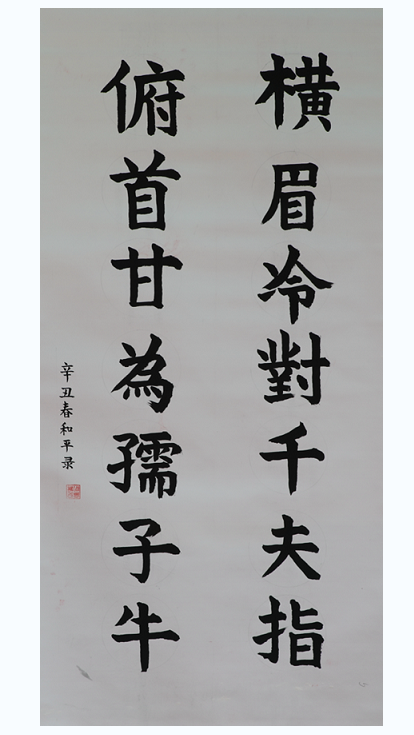 橫眉冷對千夫指
俯首甘為孺子牛
辛丑春和平录